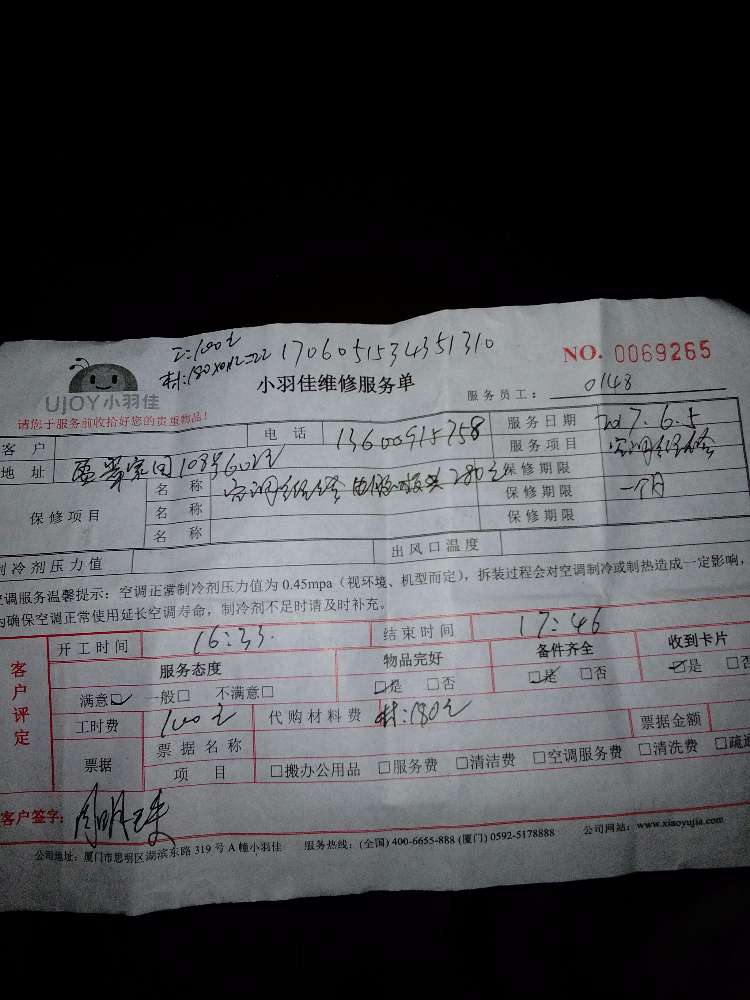 工:100元 1706051534351310
材:180×0.12=22
NO. 0069265
UJOY小羽佳
小羽佳维修服务单
服务员工: 0148
请您于服务前收拾好您的贵重物品!
客户 电话 13600915758 服务日期 2017.6.5
地址 108号602 服务项目 空调维修
保修项目 名称 空调维修 280元 保修期限
名称 保修期限 一个月
名称 保修期限
制冷剂压力值 出风口温度
空调服务温馨提示:空调正常制冷剂压力值为 0.45mpa(视环境、机型而定),拆装过程会对空调制冷或制热造成一定影响,
为确保空调正常使用延长空调寿命,制冷剂不足时请及时补充。
客户评定
开工时间 16:33. 结束时间 17:46
服务态度 物品完好 备件齐全 收到卡片
满意☑ 一般□ 不满意□ ☑是 □否 ☑是 □否 ☑是 □否
工时费 100元 代购材料费 材:180元 票据金额
票据 票据名称
项目 □搬办公用品 □服务费 □清洁费 □空调服务费 □清洗费 □疏通
客户签字:
公司地址:厦门市思明区湖滨东路 319 号 A 幢小羽佳 服务热线:(全国) 400-6655-888 (厦门) 0592-5178888 公司网站:www.xiaoyujia.com